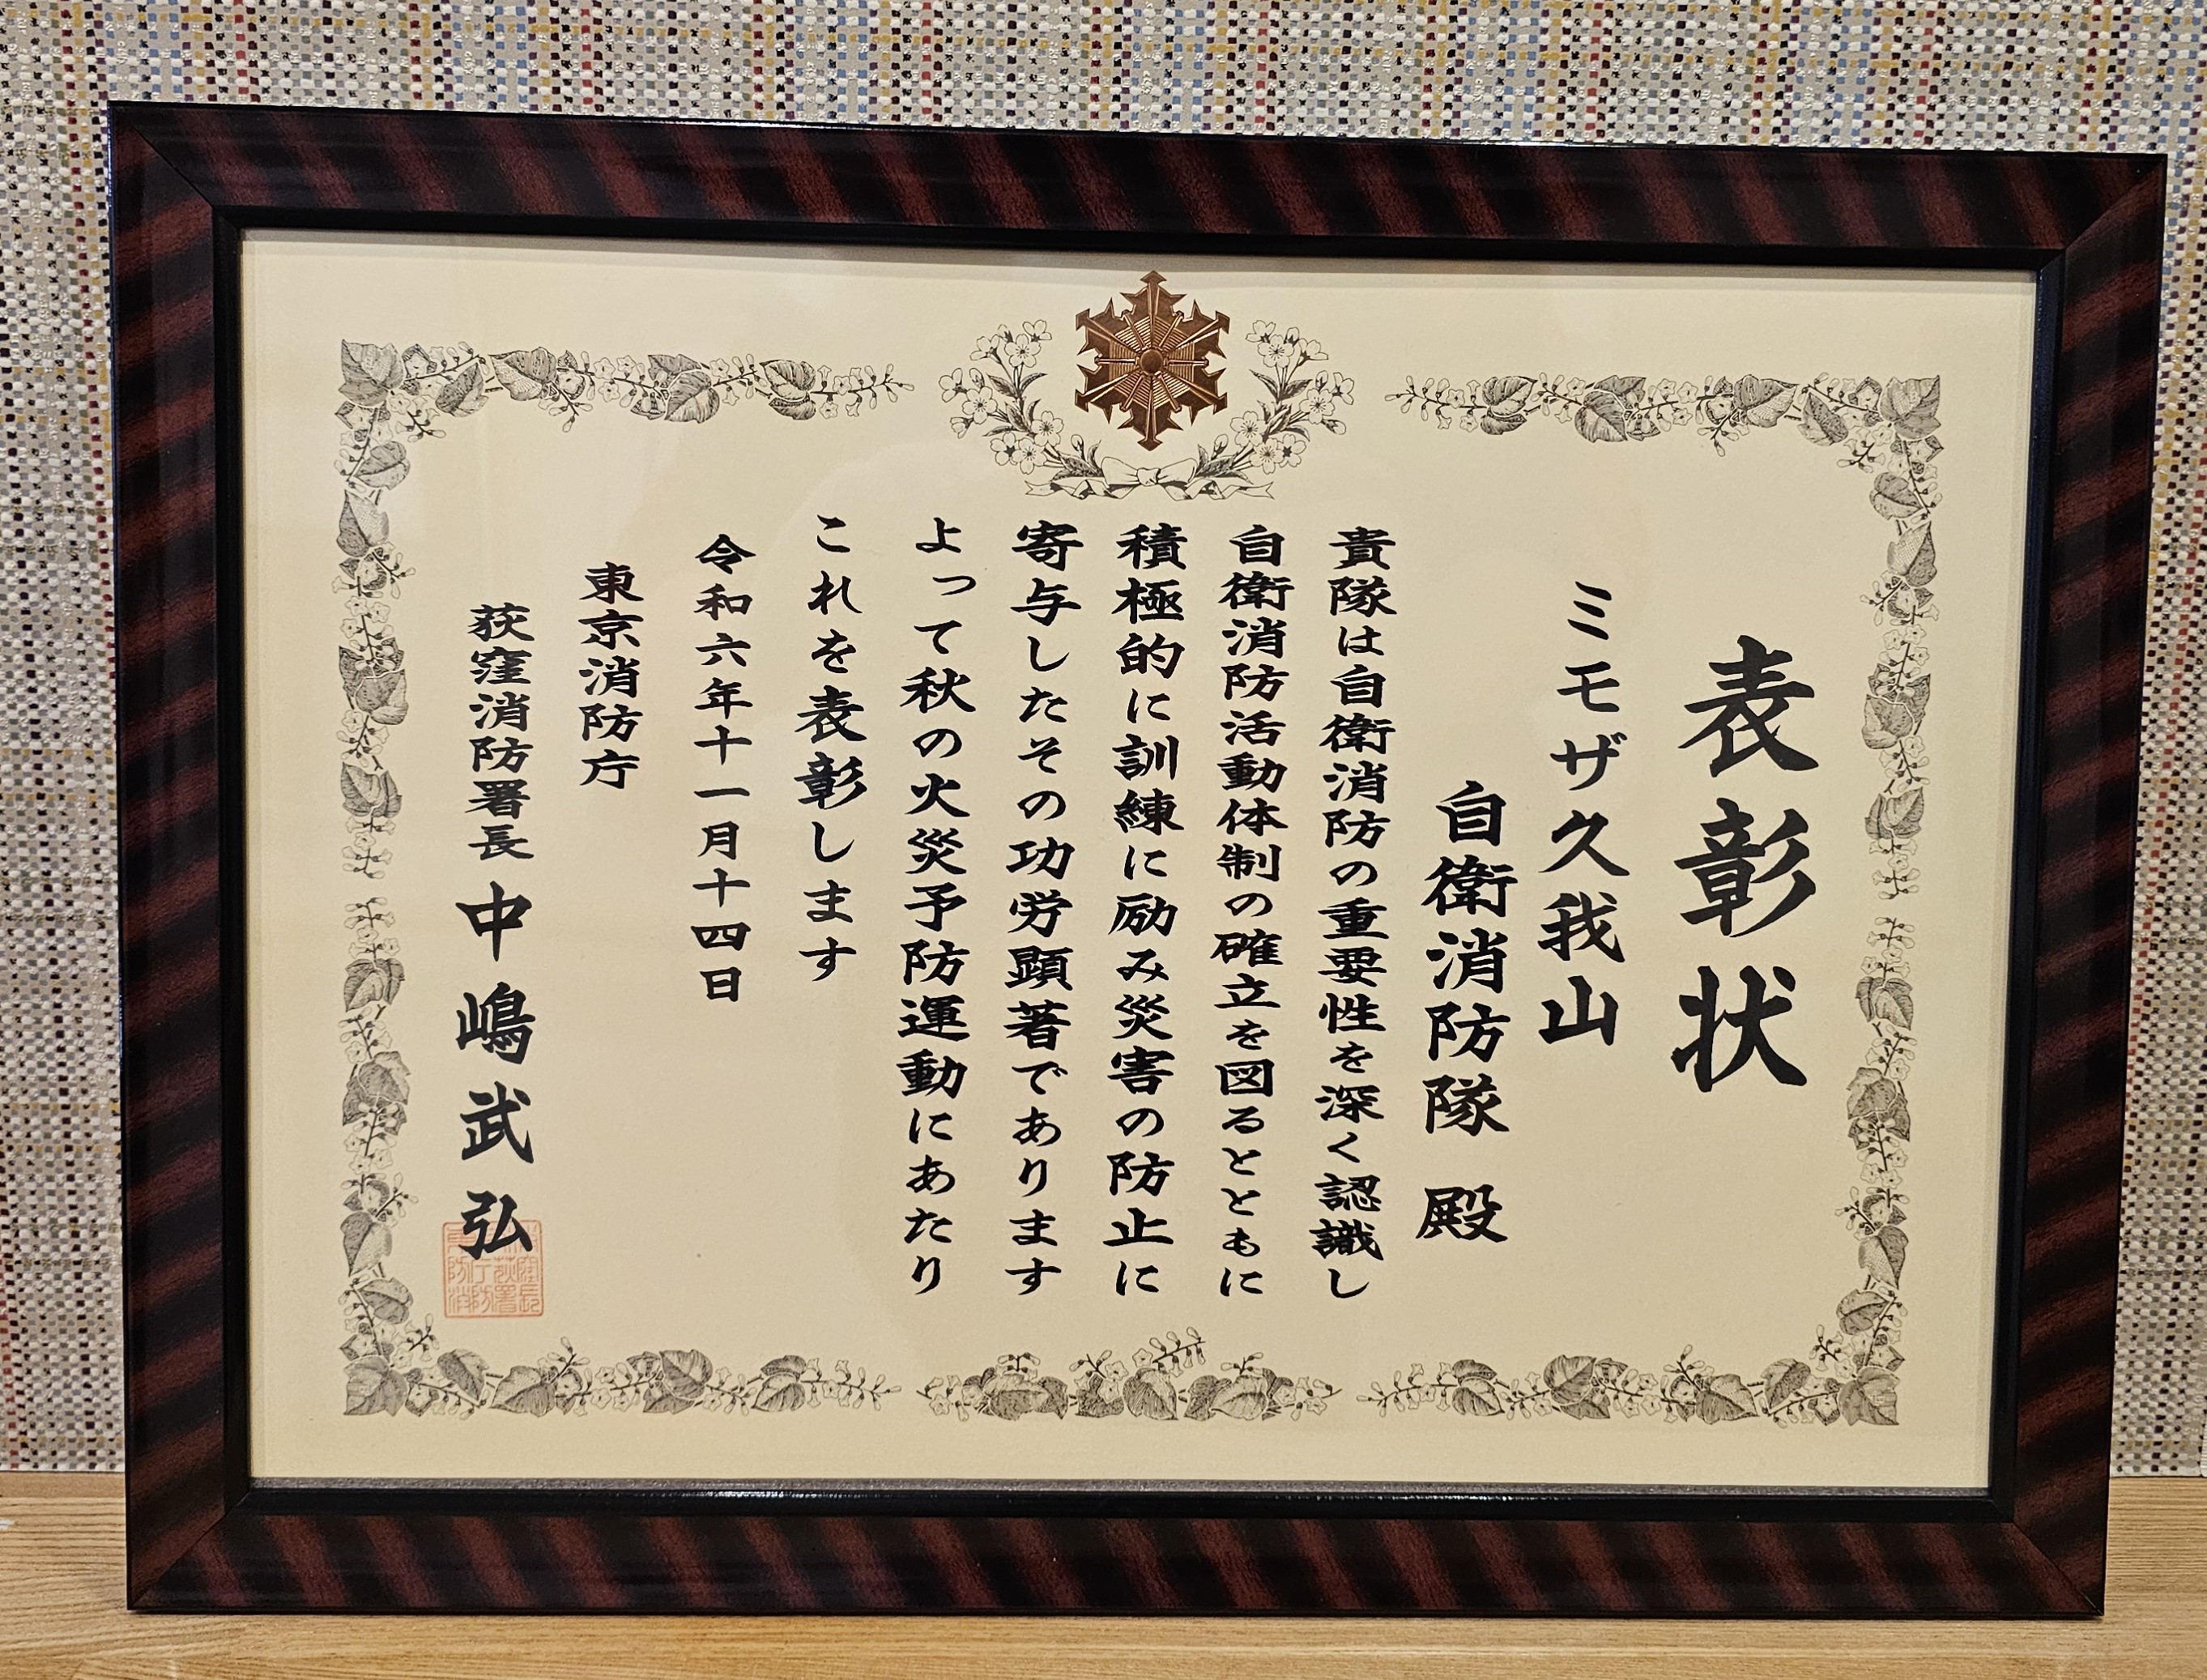 表彰状
ミモザ久我山
自衛消防隊 殿
貴隊は自衛消防の重要性を深く認識し
自衛消防活動体制の確立を図るとともに
積極的に訓練に励み災害の防止に
寄与したその功労顕著であります
よって秋の火災予防運動にあたり
これを表彰します
令和六年十一月十四日
東京消防庁
荻窪消防署長 中嶋武弘